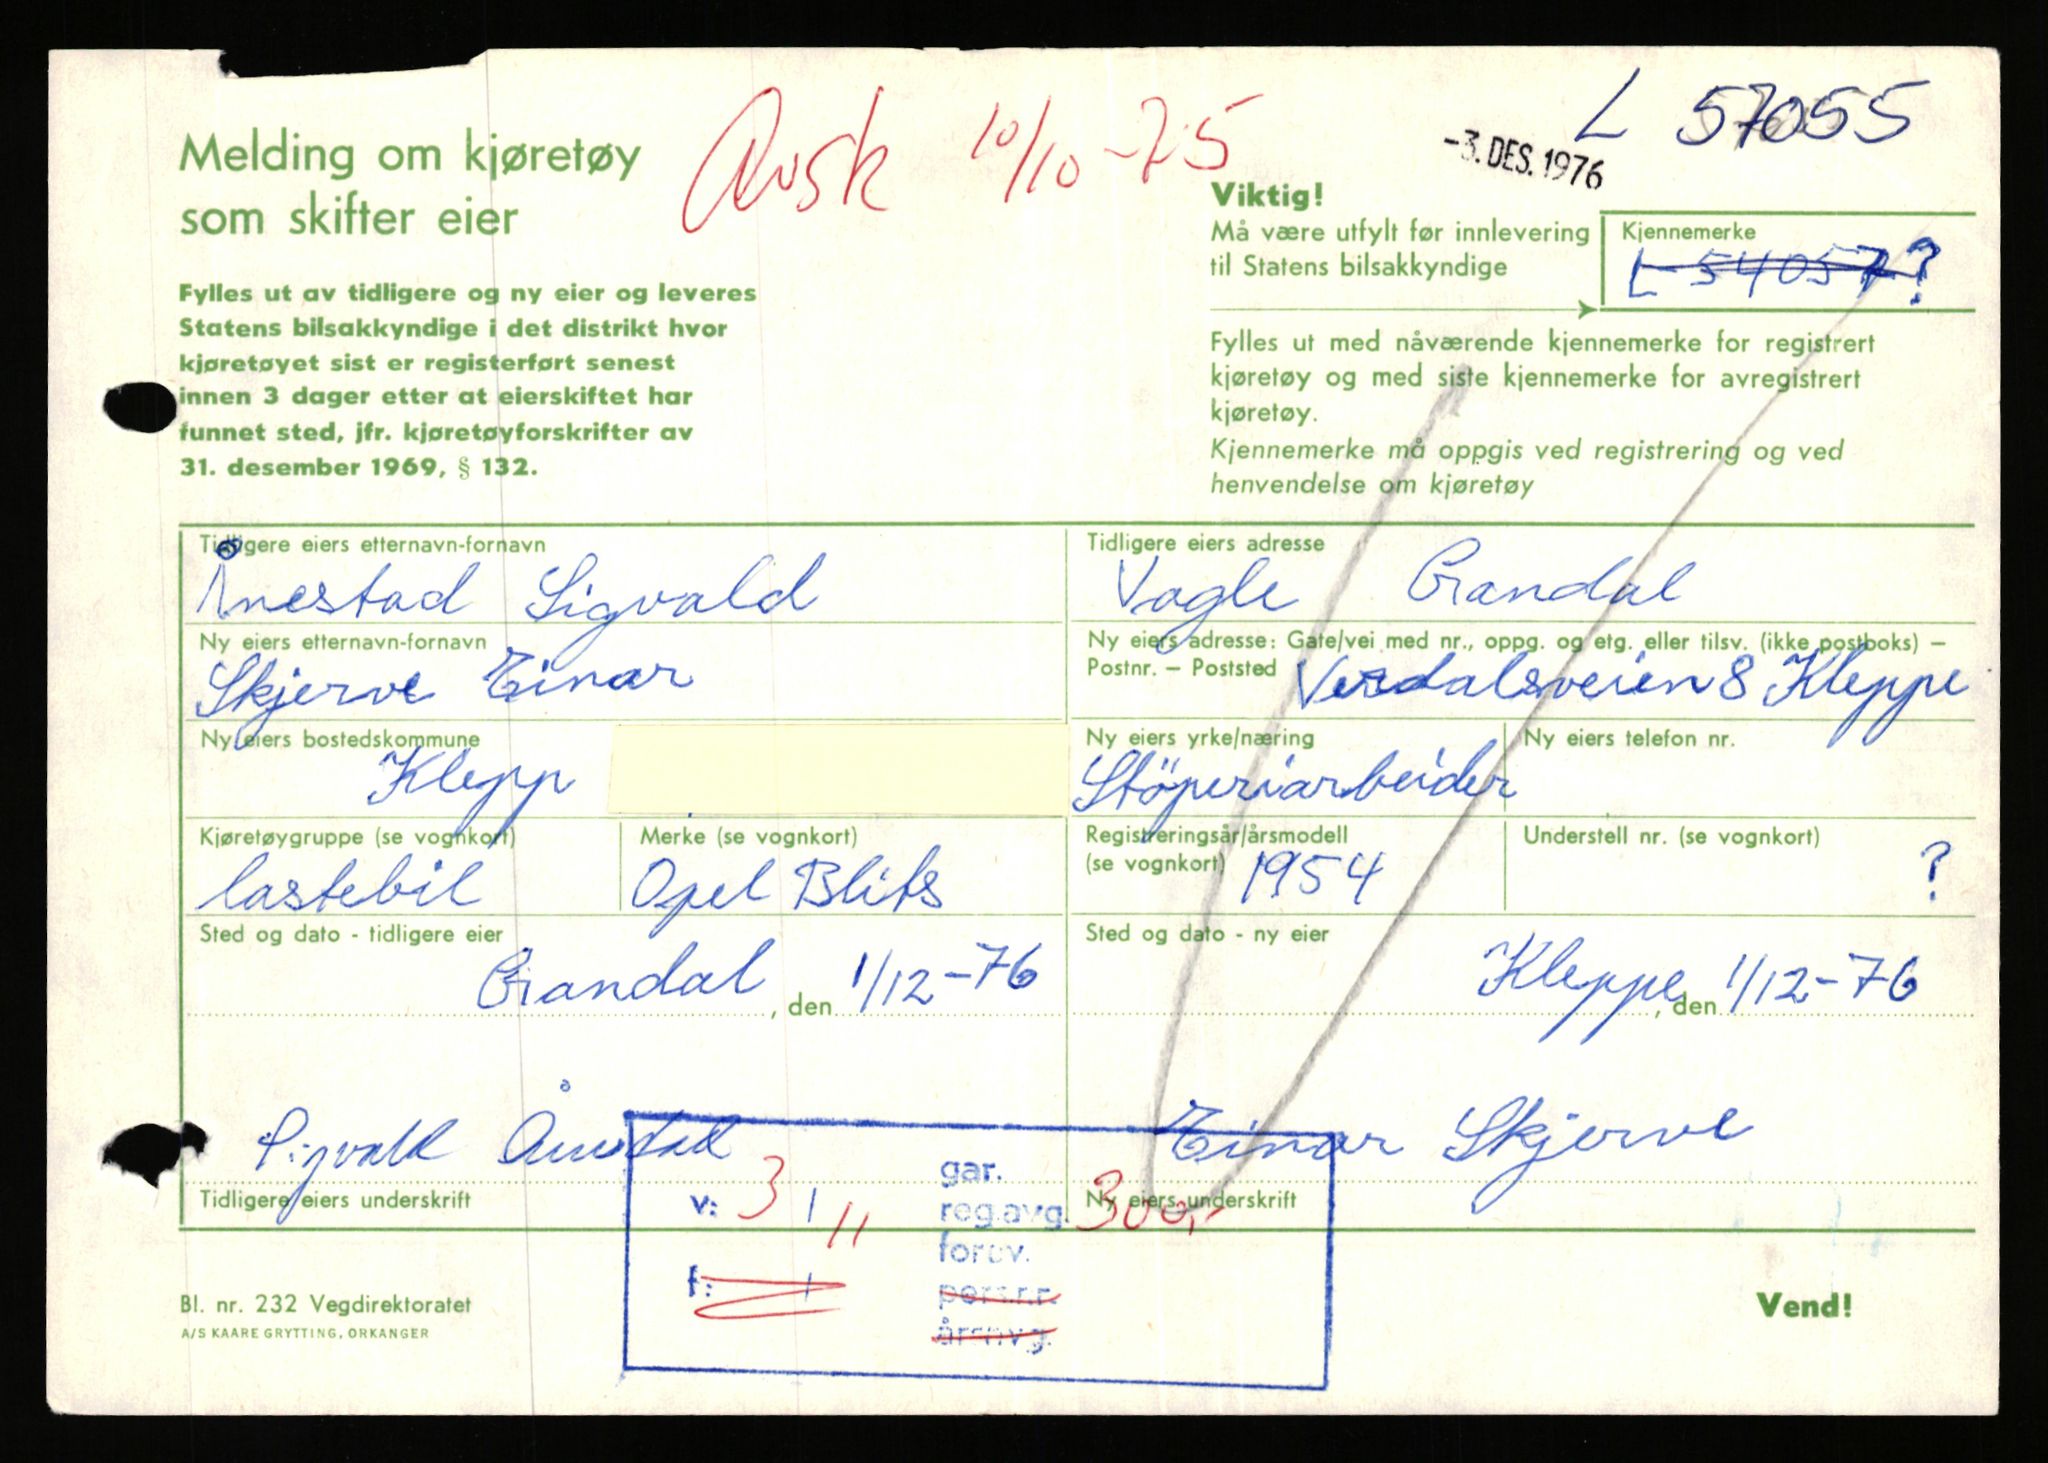 L 57055
Avsk 10/10-75
-3. DES. 1976
Melding om kjøretøy
som skifter eier
Fylles ut av tidligere og ny eier og leveres
Statens bilsakkyndige i det distrikt hvor
kjøretøyet sist er registerført senest
innen 3 dager etter at eierskiftet har
funnet sted, jfr. kjøretøyforskrifter av
31. desember 1969, § 132.
Viktig!
Må være utfylt før innlevering
til Statens bilsakkyndige
Kjennemerke
L-54057?
Fylles ut med nåværende kjennemerke for registrert
kjøretøy og med siste kjennemerke for avregistrert
kjøretøy.
Kjennemerke må oppgis ved registrering og ved
henvendelse om kjøretøy
Tidligere eiers etternavn-fornavn
Ånestad Sigvald
Tidligere eiers adresse
Vagle Gandal
Ny eiers etternavn-fornavn
Skjerve Einar
Ny eiers adresse: Gate/vei med nr., oppg. og etg. eller tilsv. (ikke postboks) –
Postnr. – Poststed
Verdalsveien 8 Kleppe
Ny eiers bostedskommune
Klepp
Ny eiers yrke/næring
Støperiarbeider
Ny eiers telefon nr.
Kjøretøygruppe (se vognkort)
lastebil
Merke (se vognkort)
Opel Blits
Registreringsår/årsmodell
(se vognkort) 1954
Understell nr. (se vognkort)
?
Sted og dato - tidligere eier
Gandal, den 1/12-76
Sted og dato - ny eier
Kleppe, den 1/12-76
Sigvald Ånestad
Tidligere eiers underskrift
Einar Skjerve
Ny eiers underskrift
v: 3 / 11
f: /
gar.
reg.avg. 300,-
forsv.
pers.nr.
årsavg.
Bl. nr. 232 Vegdirektoratet
A/S KAARE GRYTTING, ORKANGER
Vend!